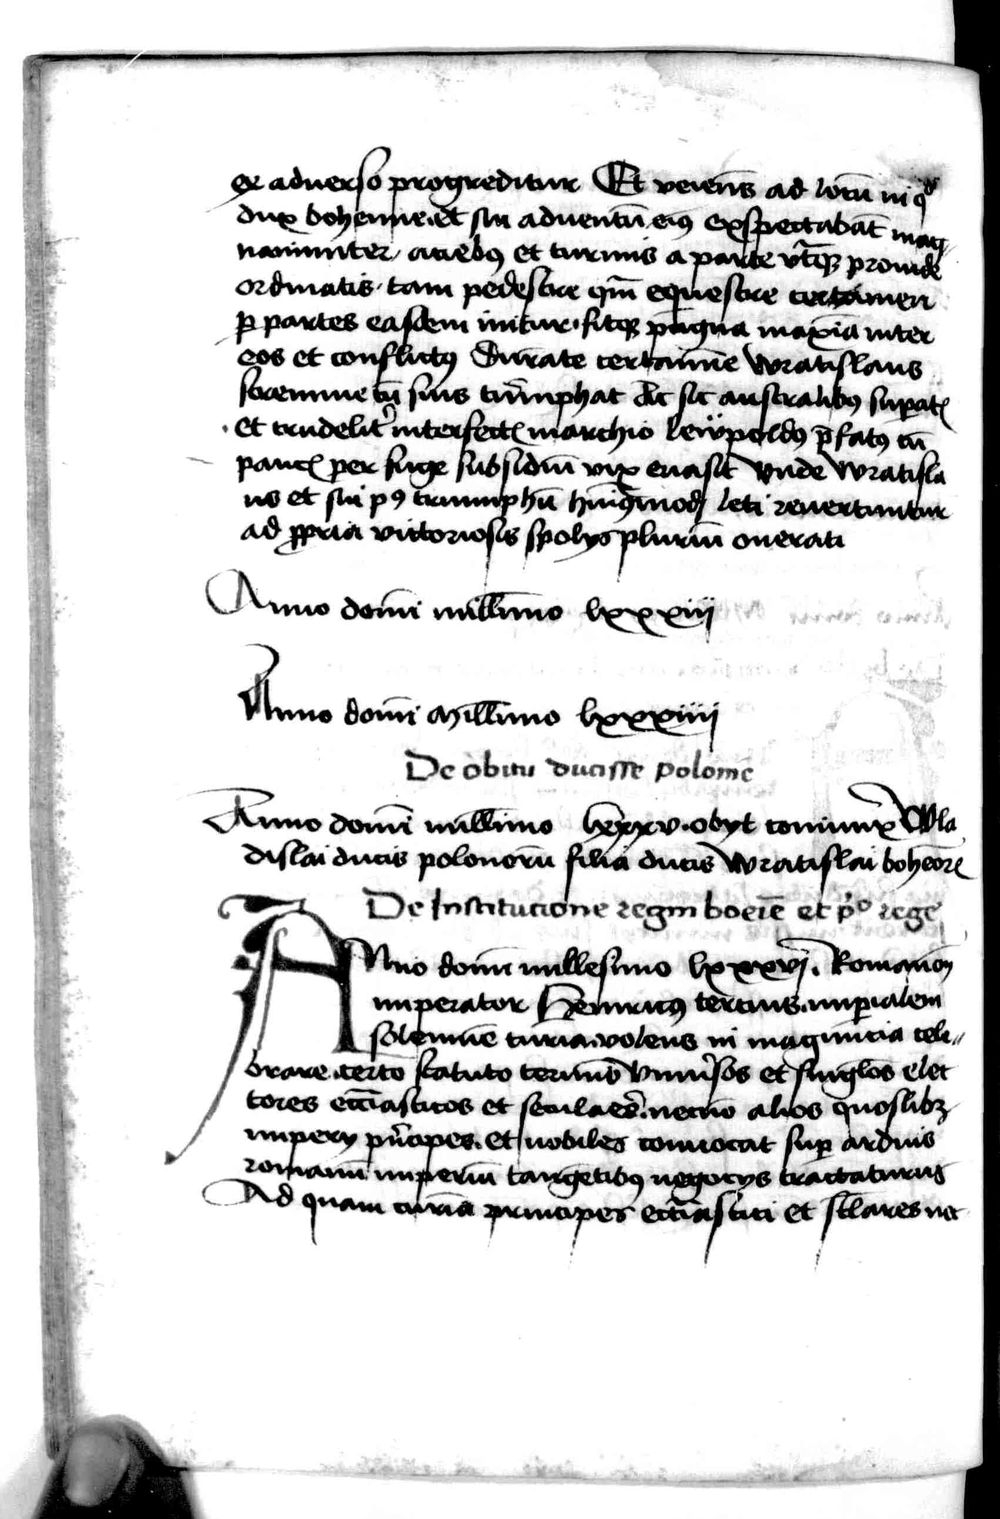 ex adverso progreditur Et veniens ad locū in qd
dux bohemie et sui adventū eiꝰ exspectabāt mag
nanimiter aciebꝰ et turmis a parte utͣqꝫ provide
ordinatis tam pedestre qm̄ equestre certamen
ꝑ partes easdem initur fitqꝫ pugna maxīa inter
eos et conflictꝰ Durāte certamīe Wratislaus
strennue cū suis triūphat dc̄ sic australibꝰ suꝑatꝭ
et crudelit̉ interfectꝭ marchio lewpoldꝰ p̄fatꝰ cū
paucꝭ per fuge subsidiū vix evasit Unde Wratisla
us et sui pꝰ triumphū hui9modi leti revertuntur
ad ꝓpria victoriosis spolys plurimū onerati
Anno domī millīmo lxxxiij
Anno domī Millīmo lxxxiiij
De obitu ducisse polonie
Anno domī millīmo lxxxv obyt coniunx Wla
dislai ducis polonorū filia ducis Wratislai bohēorꝭ
De Institucione regni boeīe et pͦ rege
Anno domī millesimo lxxxvj Romanoꝝ
imperator Henricꝰ tercius imꝑialem
solemnē curiā volens in maguncia cele
brare certo statuto termīo univ̉sos et singlos elec
tores eccīasticos et seculaēs necnō alios quoslibꝫ
impery p̉ncipes et nobiles convocat suꝑ arduis
romanū imperiū tangētibꝰ negocys tractaturus
Ad quam curiā principes eccīastici et sclares nec